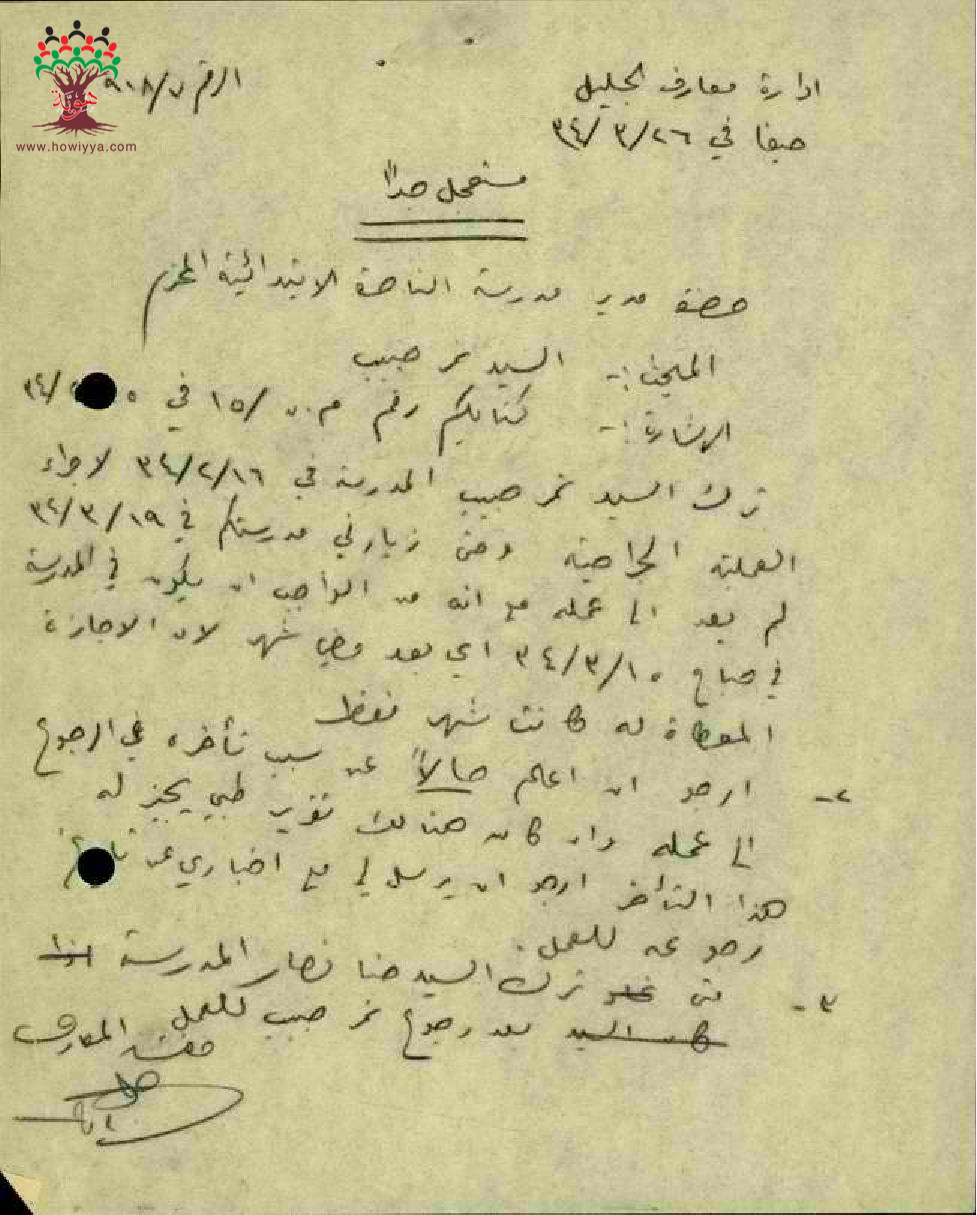 هوية
www.howiyya.com
ادارة معارف الجليل
الرقم ٩٠٨/٧
حيفا في ٢٦/٣/٣٤
مستعجل جداً
حضرة مدير مدرسة الناصرة الابتدائية المحترم
المبحث :- السيد نمر حبيب
الاشارة :- كتابكم رقم م.٧٠/١٥ في ٣٤/
ترك السيد نمر حبيب المدرسة في ٣٤/٢/١٦ لاجراء
العملية الجراحية وحتى زيارتي مدرستكم في ٣٤/٣/١٩
لم يعد الى عمله مع انه من الواجب ان يكون في المدرسة
في صباح ٣٤/٣/١٥ اي بعد مضي شهر لان الاجازة
المعطاة له كانت شهر فقط
٢- ارجو ان اعلم حالاً عن سبب تأخره في الرجوع
الى عمله وان كان هنالك تقرير طبي يجيز له
هذا التأخر ارجو ان يرسل لي مع اخباري عن تاريخ
رجوعه للعمل.
٣- متى ترك السيد حنا نصار المدرسة
كان السيد بعد رجوع نمر حبيب للعمل
مفتش المعارف